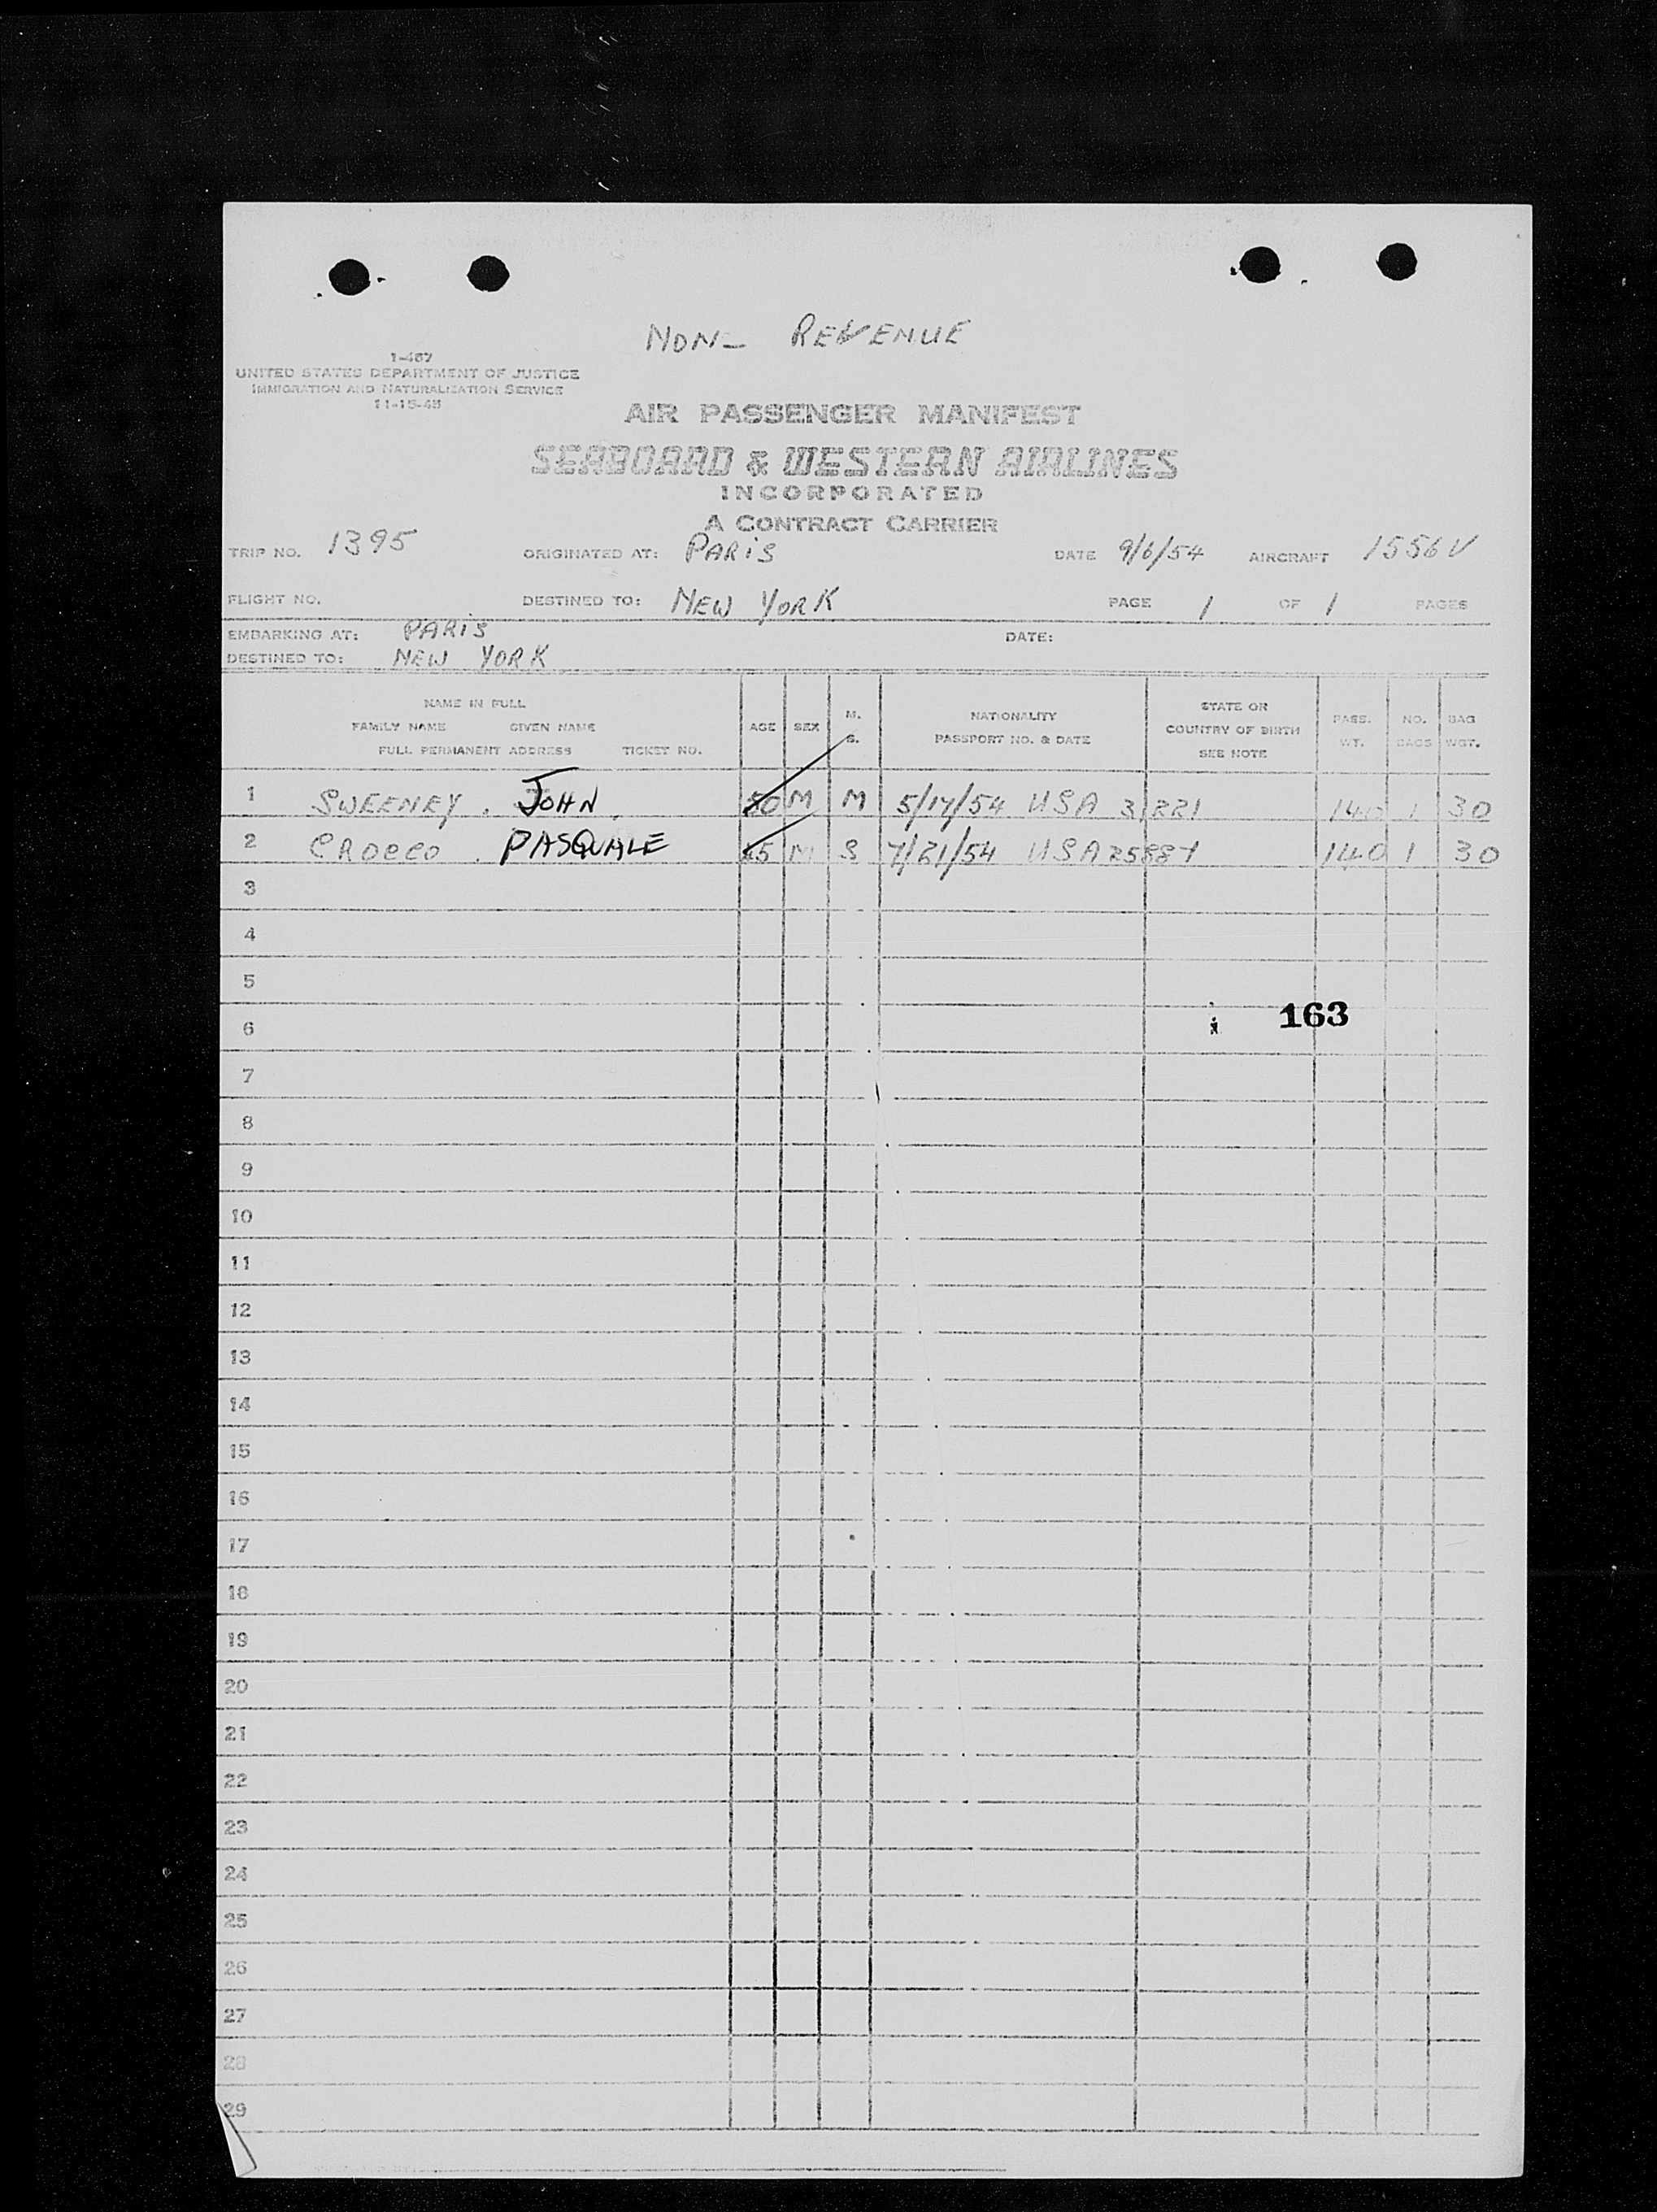 NON- REVENUE
1-467
UNITED STATES DEPARTMENT OF JUSTICE
IMMIGRATION AND NATURALIZATION SERVICE
11-15-48
AIR PASSENGER MANIFEST
SEABOARD & WESTERN AIRLINES
INCORPORATED
A CONTRACT CARRIER
TRIP NO. 1395 ORIGINATED AT: PARIS DATE 9/6/54 AIRCRAFT 1556V
FLIGHT NO. DESTINED TO: NEW YORK PAGE 1 OF 1 PAGES
EMBARKING AT: PARIS DATE:
DESTINED TO: NEW YORK
NAME IN FULL
FAMILY NAME GIVEN NAME
FULL PERMANENT ADDRESS TICKET NO.
AGE
SEX
M.
S.
NATIONALITY
PASSPORT NO. & DATE
STATE OR
COUNTRY OF BIRTH
SEE NOTE
PASS.
WT.
NO.
BAGS
BAG
WGT.
1 SWEENEY. JOHN M M 5/17/54 USA 31221 140 1 30
2 CROCCO. PASQUALE M S 7/21/54 USA 140 1 30
3
4
5
6 163
7
8
9
10
11
12
13
14
15
16
17
18
19
20
21
22
23
24
25
26
27
28
29